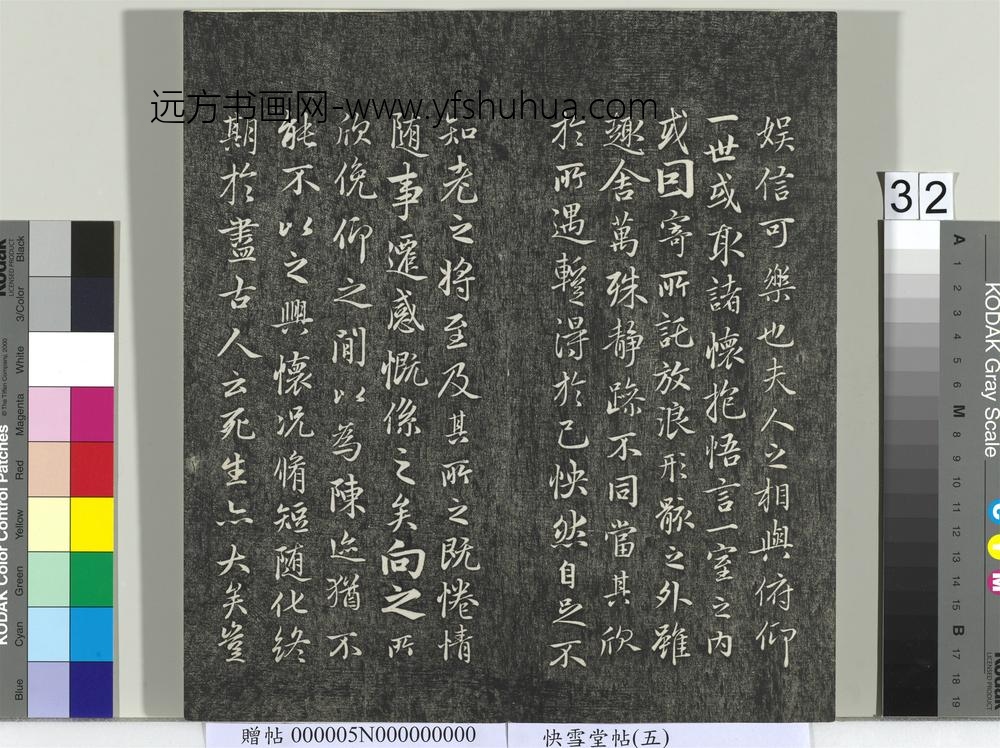 远方书画网-www.yfshuhua.com
娱信可樂也夫人之相與俯仰
一世或取諸懷抱悟言一室之內
或曰寄所託放浪形骸之外雖
趣舍萬殊静躁不同當其欣
於所遇蹔得於己怏然自足不
知老之將至及其所之既惓情
随事遷感慨係之矣向之所
欣俛仰之間以為陳迹猶不
能不以之興懷况脩短随化終
期於盡古人云死生亦大矣豈
32
Kodak
LICENSED PRODUCT
© The Tiffen Company, 2000
KODAK Color Control Patches
Black
3/Color
White
Magenta
Red
Yellow
Green
Cyan
Blue
KODAK Gray Scale
A 1 2 3 4 5 6 M 8 9 10 11 12 13 14 15 B 17 18 19
C
Y
M
Kodak
LICENSED PRODUCT
贈帖 000005N000000000
快雪堂帖(五)